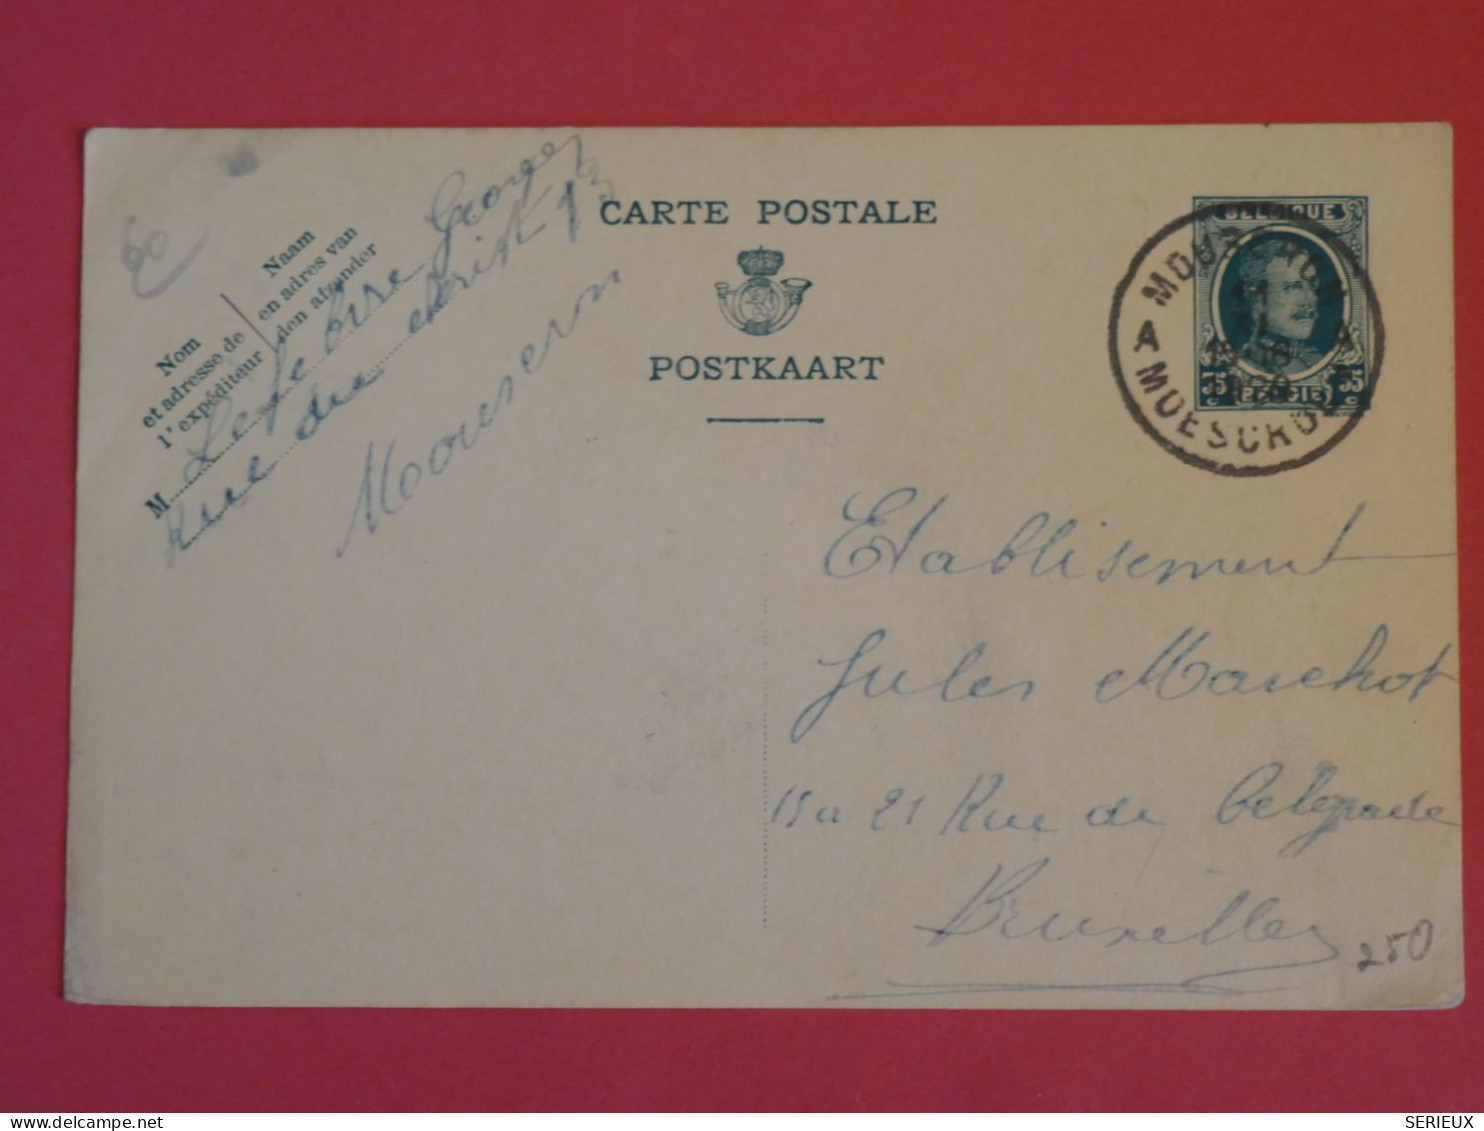 60
CARTE POSTALE
POSTKAART
Nom
et adresse de
l'expéditeur
Naam
en adres van
den afzender
M Lefebvre Georges
Rue du christ 13
Mouscron
BELGIQUE
35 c BELGIE 35 c
MOUSCRON
A A
11
1929
MOESCROEN
Etablisement
Jules Marchot
15 a 21 Rue de Belgrade
Bruxelles
250
SERIEUX